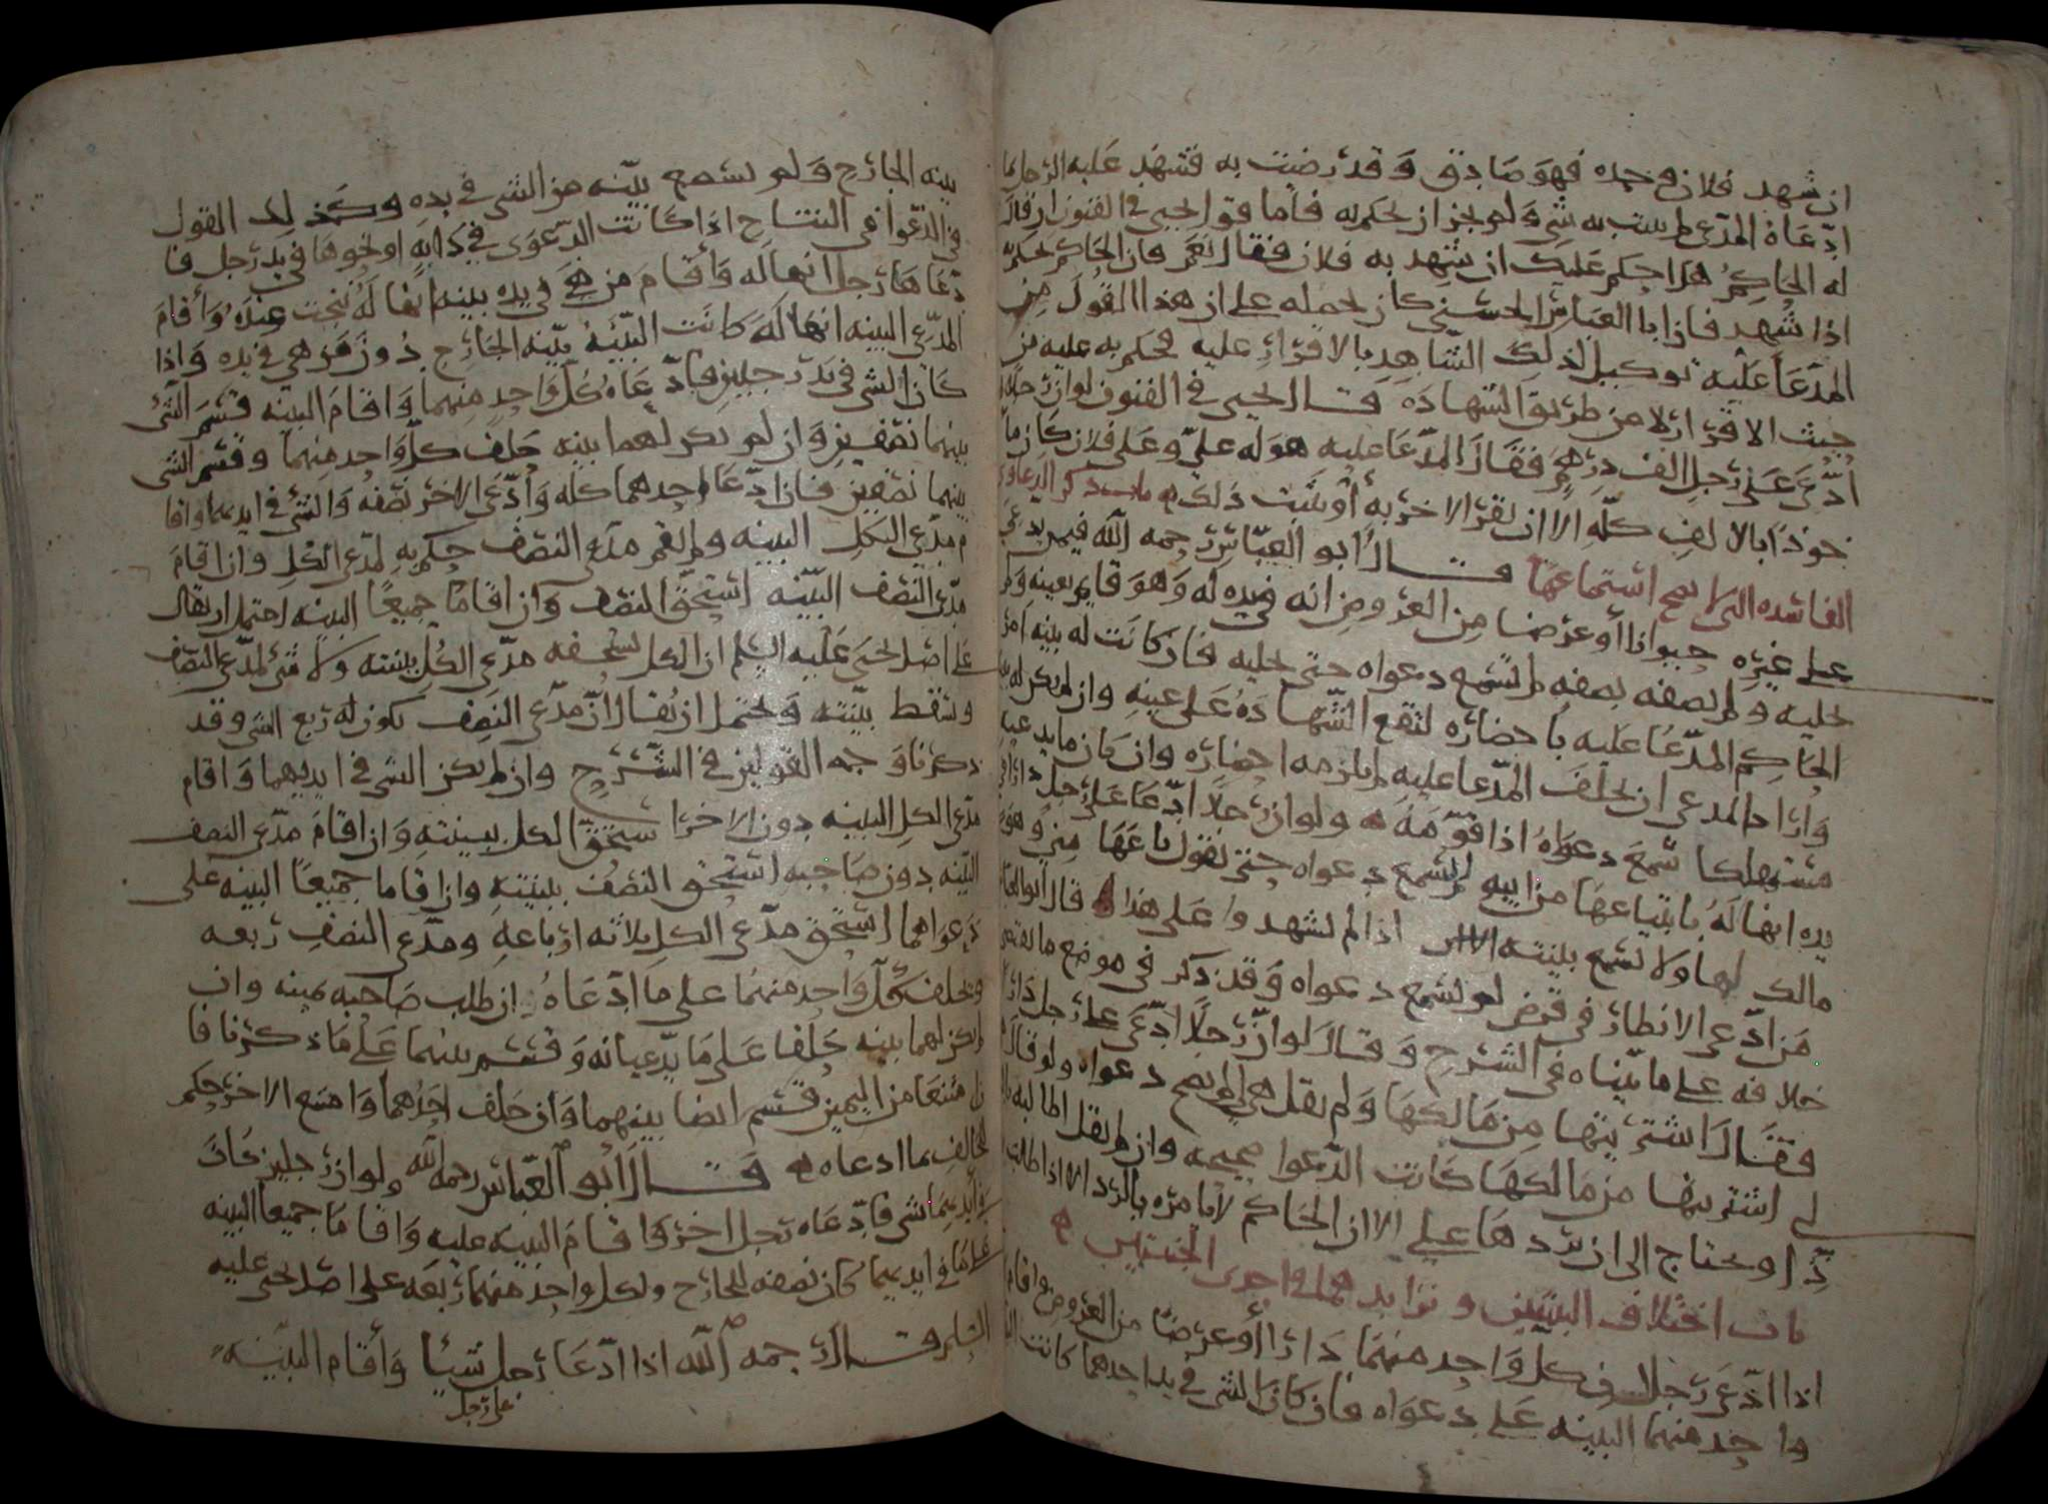 ان شهد فلان وحده فهو صادق وقد رضيت به فشهد عليه الرجل بما
ادعاه المدعي لم يثبت به شي ولم يجز ان يحكم به فاما قول يحيى في الفنون ان قال
له الحاكم هل احكم عليك ان شهد به فلان فقال نعم فان الحاكم يحكم
اذا شهد فان ابا العباس الحسني كان يحمله على ان هذا القول من
المدعا عليه توكيل لذلك الشاهد بالاقرار عليه فيحكم به عليه من
حيث الاقرار لا من طريق الشهاده قال يحيى في الفنون لو ان رجلا
ادعى على رجل الف درهم فقال المدعا عليه هو له علي وعلى فلان كان ما
خوذا بالالف كله الا ان يقر الاخر به أو يثبت ذلك باب ذكر الدعاوى
الفاسده التي لا يصح استماعها قال أبو العباس رحمه الله فيمن يدعي
على غيره حيوانا أو عرضا من العروض انه في يده له وهو قايم بعينه ولم
يحليه ولم يصفه بصفه لم تسمع دعواه حتى يحليه فان كانت له بينه امر
الحاكم المدعا عليه باحضاره لتقع الشهاده على عينه وان لم يكن له
واراد المدعي ان يحلف المدعا عليه لم يلزمه احضاره وان كان ما يدعيه
مستهلكا سمع دعواه اذا قومه ولو ان رجلا ادعا على رجل دارا في
يده انها له بابتياعها من ابيه لم تسمع دعواه حتى يقول باعها مني وهو
مالك لها ولا تسمع بينته اذا لم يشهدوا على هذا قال أبو العباس
من ادعى الانظار في قرض لم تسمع دعواه وقد ذكر في موضع ما يقتضي
خلافه على ما بيناه في الشرح وقال لو ان رجلا ادعى على رجل دارا
فقال اشتريتها من مالكها ولم يقل هي لي لم يصح دعواه ولو قال
لي اشتريتها من مالكها كانت الدعوا صحيحه وان لم يقل اطالبه
ذا ويحتاج الى ان يردها علي الا ان الحاكم لا يامره بالرد الا اذا طالب
باب اختلاف البينتين وتزايدهما في احدى الجنبتين
اذا ادعى رجلان كل واحد منهما دارا أو عرضا من العروض واقام
واحد منهما البينه على دعواه فان كان الشي في يد احدهما كانت
بينه الخارج ولم تسمع بينه من الشي في يده وكذلك القول
في الدعوا في النتاج اذا كانت الدعوى في دابه او نحوها في يد رجل فا
دعاها رجل انها له وأقام من هي في يده بينه انها له نتجت عنده وأقام
المدعي البينه انها له كانت البينه بينه الخارج دون من هي في يده واذا
كان الشي في يد رجلين فادعاه كل واحد منهما واقام البينه قسم الشي
بينهما نصفين وان لم يكن لهما بينه حلف كل واحد منهما وقسم الشي
بينهما نصفين فان ادعا احدهما كله وادعى الاخر نصفه والشي في ايديهما واقا
م مدعي الكل البينه ولم يقم مدعي النصف حكم به لمدعي الكل وان اقام
مدعي النصف البينه استحق النصف وان اقاما جميعا البينه احتمل ان يقال
على اصل يحيى عليه السلم ان الكل يستحقه مدعي الكل ببينته ولا شي لمدعي النصف
وتسقط بينته ويحتمل ان يقال ان مدعي النصف يكون له ربع الشي وقد
ذكرنا وجه القولين في الشرح وان لم يكن الشي في ايديهما واقام
مدعي الكل البينه دون الاخر استحق الكل ببينته وان اقام مدعي النصف
البينه دون صاحبه استحق النصف ببينته وان اقاما جميعا البينه على
دعواهما استحق مدعي الكل ثلاثه ارباعه ومدعي النصف ربعه
ويحلف كل واحد منهما على ما ادعاه ان طلب صاحبه يمينه وان
لم يكن لهما بينه حلفا على ما يدعيانه وقسم بينهما على ما ذكرنا فا
ن امتنعا من اليمين قسم ايضا بينهما وان حلف احدهما وامتنع الاخر حكم
للحالف بما ادعاه قال أبو العباس رحمه الله ولو ان رجلين كان
في أيديهما شي فادعاه رجل اخر واقام البينه عليه واقاما جميعا البينه
على ما في ايديهما كان نصفه للخارج ولكل واحد منهما ربعه على اصل يحيى عليه
السلم قال رحمه الله اذا ادعا رجل شيئا وأقام البينه
على رجل